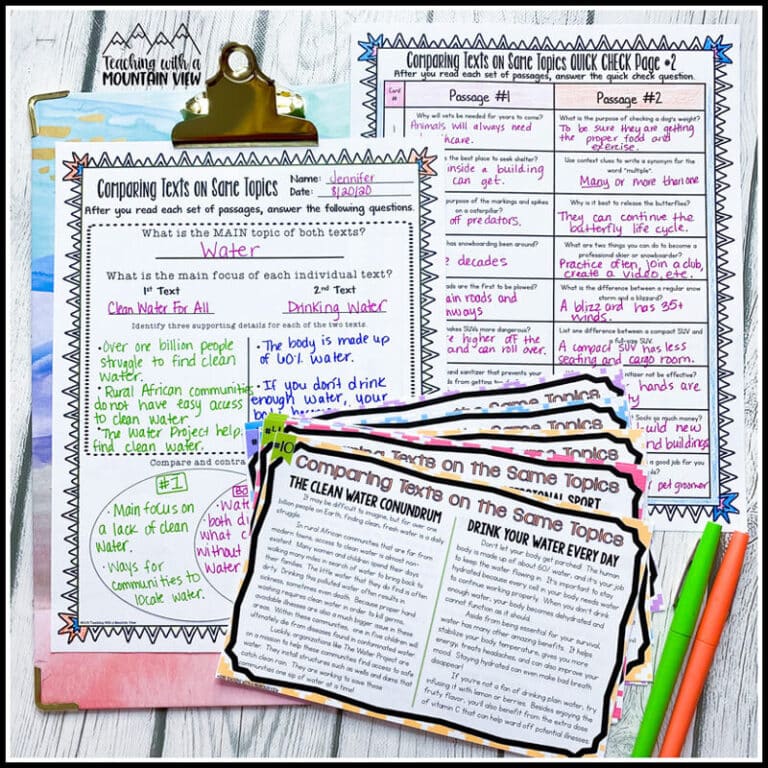 Teaching with a
MOUNTAIN VIEW
Comparing Texts on Same Topics QUICK CHECK Page #2
After you read each set of passages, answer the quick check question.
Card #
Passage #1
Passage #2
Why will vets be needed for years to come?
Animals will always need
hcare.
What is the purpose of checking a dog's weight?
To be sure they are getting
the proper food and
exercise.
is the best place to seek shelter?
inside a building
can get.
Use context clues to write a synonym for the
word "multiple".
Many or more than one
purpose of the markings and spikes
on a caterpillar?
off predators.
Why is it best to release the butterflies?
They can continue the
butterfly life cycle.
has snowboarding been around?
decades
What are two things you can do to become a
professional skier or snowboarder?
Practice often, join a club,
create a video, etc.
ads are the first to be plowed?
ain roads and
ways
What is the difference between a regular snow
storm and a blizzard?
A blizzard has 35+
winds.
makes SUVs more dangerous?
re higher off the
and can roll over.
List one difference between a compact SUV and
a full-size SUV.
A compact SUV has less
seating and cargo room.
and sanitizer that prevents your
ds from getting
nitizer not be effective?
hands are
ty
Sochi so much money?
build new
and buildings
a good job for you
pet groomer
Comparing Texts on Same Topics
Name: Jennifer
Date: 8/20/20
After you read each set of passages, answer the following questions.
What is the MAIN topic of both texts?
Water
What is the main focus of each individual text?
1st Text
2nd Text
Clean Water For All
Drinking Water
Identify three supporting details for each of the two texts.
• Over one billion people
struggle to find clean
water.
• Rural African communities
do not have easy access
to clean water
• The Water Project help
find clean water.
• The body is made up
of 60% water.
• If you don't drink
enough water, your
Compare and contra
#1
• Main focus on
a lack of clean
water.
• Ways for
communities to
locate water.
Bo
• Wate
both di
what c
without
water
#10
Comparing Texts on the Same Topics
THE CLEAN WATER CONUNDRUM
It may be difficult to imagine, but for over one
billion people on Earth, finding clean, fresh water is a daily
struggle.
In rural African communities that are far from
modern towns, access to clean water is almost non-
existent. Many women and children spend their days
walking many miles in search of water to bring back to
their families. The little water that they do find is often
dirty. Drinking this polluted water often results in
sickness, sometimes even death. Because proper hand
washing requires clean water in order to kill germs,
avoidable illnesses are also a much bigger issue in these
areas. Within these communities, one in five children will
ultimately die from diseases found in contaminated water.
Luckily, organizations like The Water Project are
on a mission to help these communities find access to safe
water. They install structures such as wells and dams that
catch clean rain. They are working to save these
communities one sip of water at a time!
DRINK YOUR WATER EVERY DAY
Don't let your body get parched! The human
body is made up of about 60% water, and it's your job
to keep the water flowing in. It's important to stay
hydrated because every cell in your body needs water
to continue working properly. When you don't drink
enough water, your body becomes dehydrated and
cannot function as it should.
Aside from being essential for your survival,
water has many other amazing benefits. It helps
stabilize your body temperature, gives you more
energy, treats headaches, and can also improve your
mood. Staying hydrated can even make bad breath
disappear!
If you're not a fan of drinking plain water, try
infusing it with lemon or berries. Besides enjoying the
fruity flavor, you'll also benefit from the extra dose
of vitamin C that can help ward off potential illnesses.